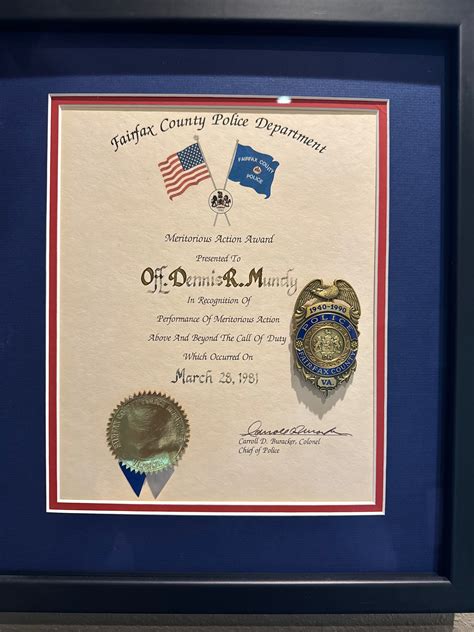 Fairfax County Police Department
FAIRFAX COUNTY
POLICE
Meritorious Action Award
Presented To
Off. Dennis R. Mundy
In Recognition Of
Performance Of Meritorious Action
Above And Beyond The Call Of Duty
Which Occurred On
March 28, 1981
1940-1990
POLICE
FAIRFAX COUNTY
VA.
Carroll D. Buracker, Colonel
Chief of Police